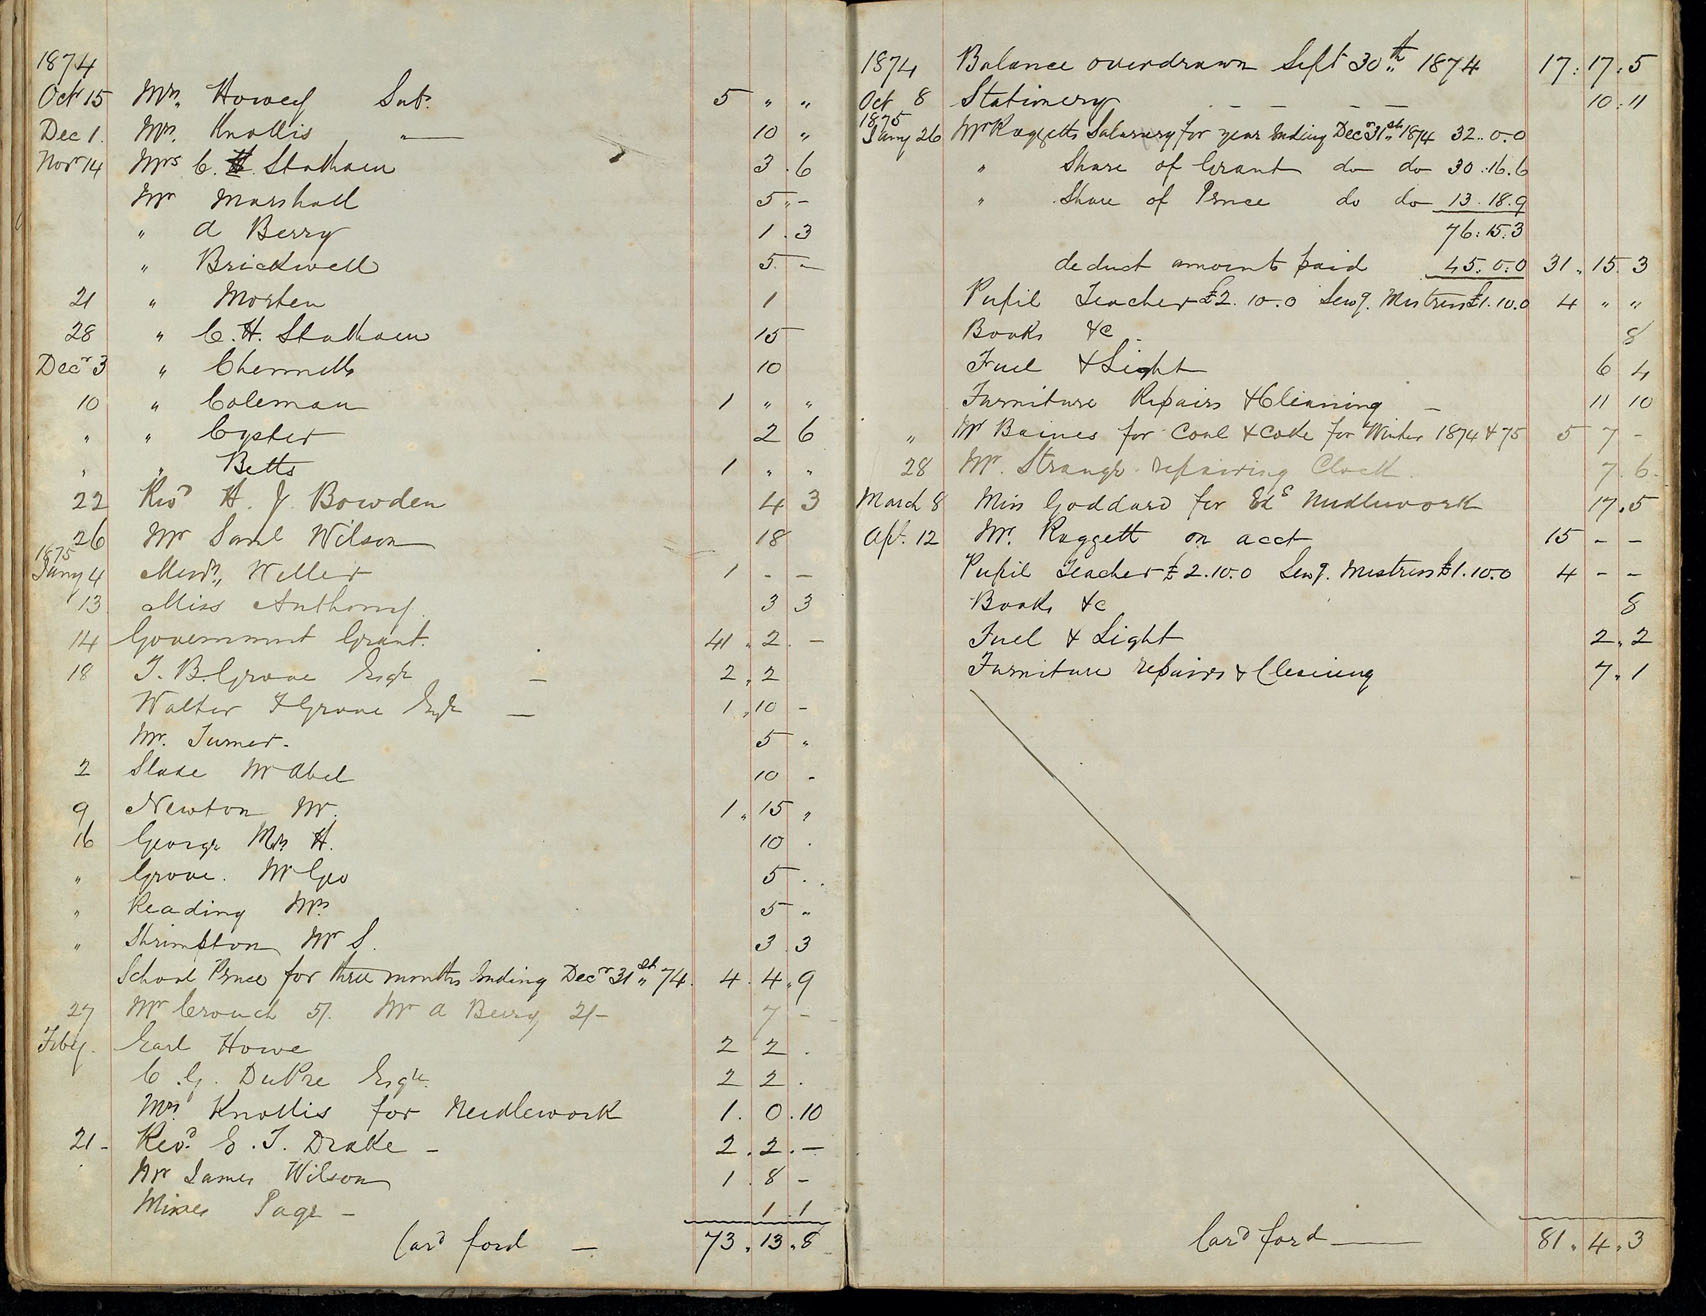 1874
Oct 15 Mrs. Howey Sub. 5 " "
Dec 1. Mrs. Knollis " 10 "
Novr 14 Mrs C. H. Statham 3 . 6
Mr Marshall 5 " -
" A Berry 1 . 3
" Brickwell 5 . -
21 " Morten 1
28 " C. H. Statham 15
Decr 3 " Chennells 10
10 " Coleman 1 " "
" " Cyster 2 6
" " Betts 1 " "
22 Revd H. J. Bowden 4 3
26 Mr Saml Wilson 18
1875
Jany 4 Messrs Weller 1 - -
13 Miss Anthony. 3 3
14 Government Grant. 41 . 2 . -
18 T. B. Grove Esqre - 2 . 2
Walter F Grove Esqre - 1 . 10 -
Mr. Turner. 5 "
2 Slade Mr Abel 10 -
9 Newton Mr. 1 . 15 "
16 George Mrs H. 10 .
" Grove. Mr Geo 5 . .
" Reading Mrs 5 "
" Shrimpton Mr S. 3 . 3
School Pence for three months Ending Decr 31st 74. 4 . 4 . 9
27 Mr Crouch 5/. Mr A Berry 2/- 7 -
Feby. Earl Howe 2 2 .
C. G. DuPre Esqre. 2 2 .
Mrs. Knollis for Needlework 1 . 0 . 10
21 - Revd. E. T. Drake - 2 . 2 . -
Mr James Wilson 1 . 8 -
Misses Page - 1 . 1
Card ford - 73 . 13 . 8
1874 Balance overdrawn Sept 30th 1874 17 : 17 . 5
Oct 8 Stationery - - - - 10 : 11
1875
Jany 26 Mr Raggetts Salary for year Ending Decr 31st 1874 32 .. 0 . 0
" Share of Grant do do 30 : 16 . 6
" Share of Pence do do 13 . 18 . 9
76 : 15 . 3
deduct amount paid 45 . 0 . 0 31 . 15 3
Pupil Teacher £2 . 10 . 0 Sewg. Mistress £1 . 10 . 0 4 " "
Books &c 8
Fuel & Light 6 4
Furniture Repairs & Cleaning - 11 10
" Mr Baines for Coal & Coke for Winter 1874 & 75 5 7 -
28 Mr. Strange repairing Clock. 7 . 6 .
March 8 Miss Goddard for Needlework 17 . 5
Apl. 12 Mr. Raggett on acct 15 - -
Pupil Teacher £ 2 . 10 . 0 Sewg. Mistress £1 . 10 . 0 4 - -
Books &c 8
Fuel & Light 2 . 2
Furniture repairs & Cleaning 7 . 1
Card ford 81 . 4 . 3